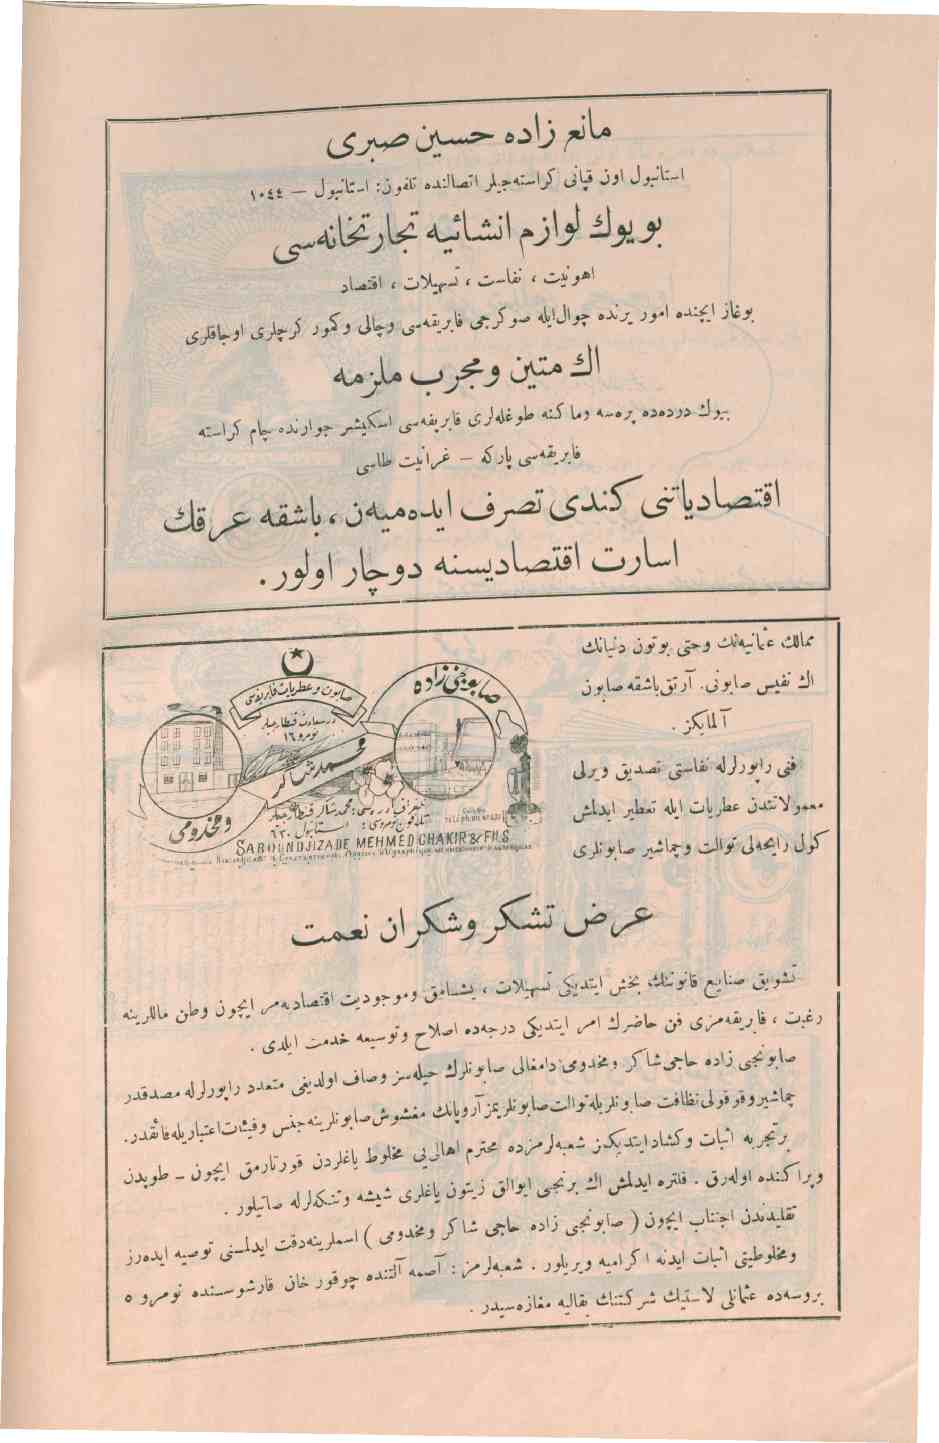 مانع زاده حسین صبری
استانبول اون قپانی کراسته‌جیلر اتصالنده تلفون: استانبول — ١٠٤٤
بویوك لوازم انشائیه تجارتخانه‌سی
اهونیت ، نفاست ، تسهیلات ، اقتصاد
بوغاز ایچنده امور یرنده چوال‌ایله صو کرجی فابریقه‌سی وچالی وکمور کرچلری اوجاقلری
اك متین ومجرب ملزمه
بیوك‌درده‌ده پره‌سه وماکنه طوغله‌لری فابریقه‌سی اسکیشهر جوارنده چام کراسته
فابریقه‌سی پارکه — غرانیت طاشی
اقتصادیاتنی کندی تصرف ایده‌میه‌ن ، باشقه عرقك
اسارت اقتصادیسنه دوچار اولور .
ممالك عثمانیه‌نك وحتی بوتون دنیانك
اك نفیس صابونی. آرتق باشقه صابون
آلمایکز .
فنی راپورلرله نفاستی تصدیق ویرلی
معمولاتندن عطریات ایله تعطیر ایدلمش
کول رایحه‌لی توالت وچماشیر صابونلری
صابون وعطریات فابریقه‌سی
درسعادت قنطارجیلر
نومرو ١٦
صابونجی زاده
محمد شاکر
ومخدومی
استانبول ٦٣٠
SABOUNDJIZADE MEHMED CHAKIR & FILS
عرض تشکر وشکران نعمت
تشویق صنایع قانوننك بخش ایتدیکی تسهیلات ، یشامق وموجودیت اقتصادیه‌مز ایچون وطن ماللرینه
رغبت ، فابریقه‌مزی فن حاضرك امر ایتدیکی درجه‌ده اصلاح وتوسیعه خدمت ایلدی .
صابونجی زاده حاجی شاکر ومخدومی دامغالی صابونلرك حیله‌سز وصاف اولدیغی متعدد راپورلرله مصدقدر
چماشیر وقوقولی نظافت صابونلریله توالت صابونلریمز آروپانك مغشوش صابونلرینه جنس وفیئات اعتباریله فائقدر.
بر تجربه اثبات وکشاد ایتدیکمز شعبه‌لرمزده محترم اهالی‌یی مخلوط یاغلردن قورتارمق ایچون — طوپدن
وپراکنده اوله‌رق . فلتره ایدلمش اك برنجی ایوالق زیتون یاغلری شیشه وتنکه‌لرله صاتیلور .
تقلیدندن اجتناب ایچون ( صابونجی زاده حاجی شاکر ومخدومی ) اسملرینه دقت ایدلمسنی توصیه ایده‌رز
ومخلوطیتی اثبات ایدنه اکرامیه ویریلور . شعبه‌لرمز : آصمه آلتنده چوقور خان قارشوسنده نومرو ٥
بروسه‌ده عثمانلی لاستیك شرکتنك بقالیه مغازه‌سیدر .